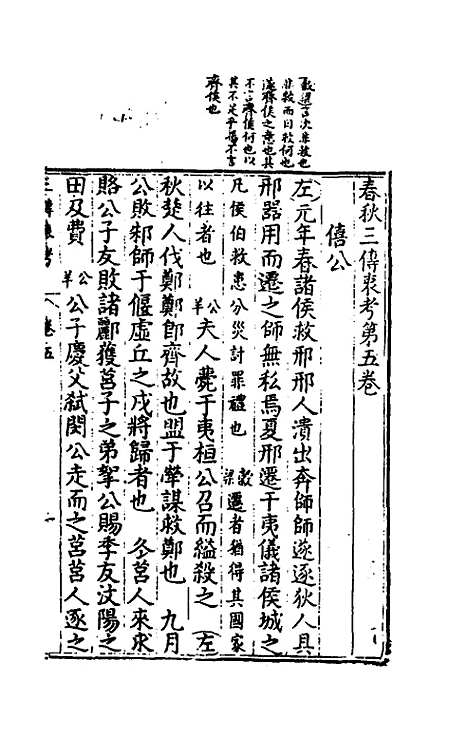 穀選言次非救也
非救而曰救何也
遂齊侯之意也其
不言齊侯何也以
其不足乎揚不言
齊侯也
春秋三傳衷考第五卷
僖公
左元年春諸侯救邢邢人潰出奔師師遂逐狄人具
邢器用而遷之師無私焉夏邢遷于夷儀諸侯城之
凡侯伯救患分災討罪禮也 穀梁遷者猶得其國家
以往者也 公羊夫人薨于夷桓公召而縊殺之 左
秋楚人伐鄭鄭卽齊故也盟于犖謀救鄭也 九月
公敗邾師于偃虛丘之戍將歸者也 冬莒人來求
賂公子友敗諸酈獲莒子之弟挐公賜季友汶陽之
田及費 公羊公子慶父弑閔公走而之莒莒人逐之
三傳衷考 卷五 一